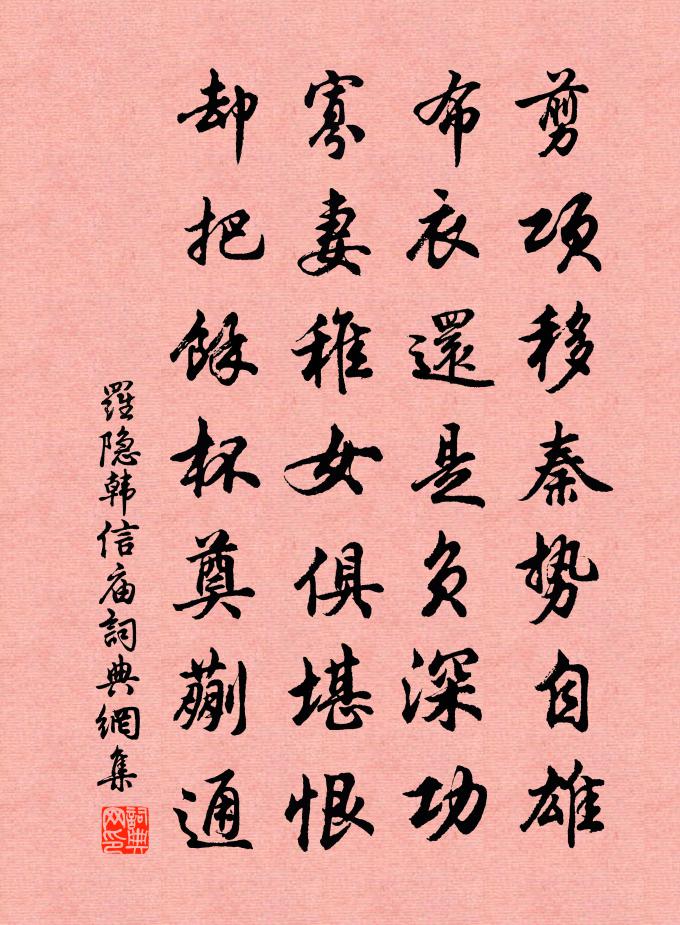 剪项移秦势自雄
布衣還是负深功
寡妻稚女俱堪恨
却把餘杯奠蒯通
羅隐韩信庙詞典網集
詞典网印